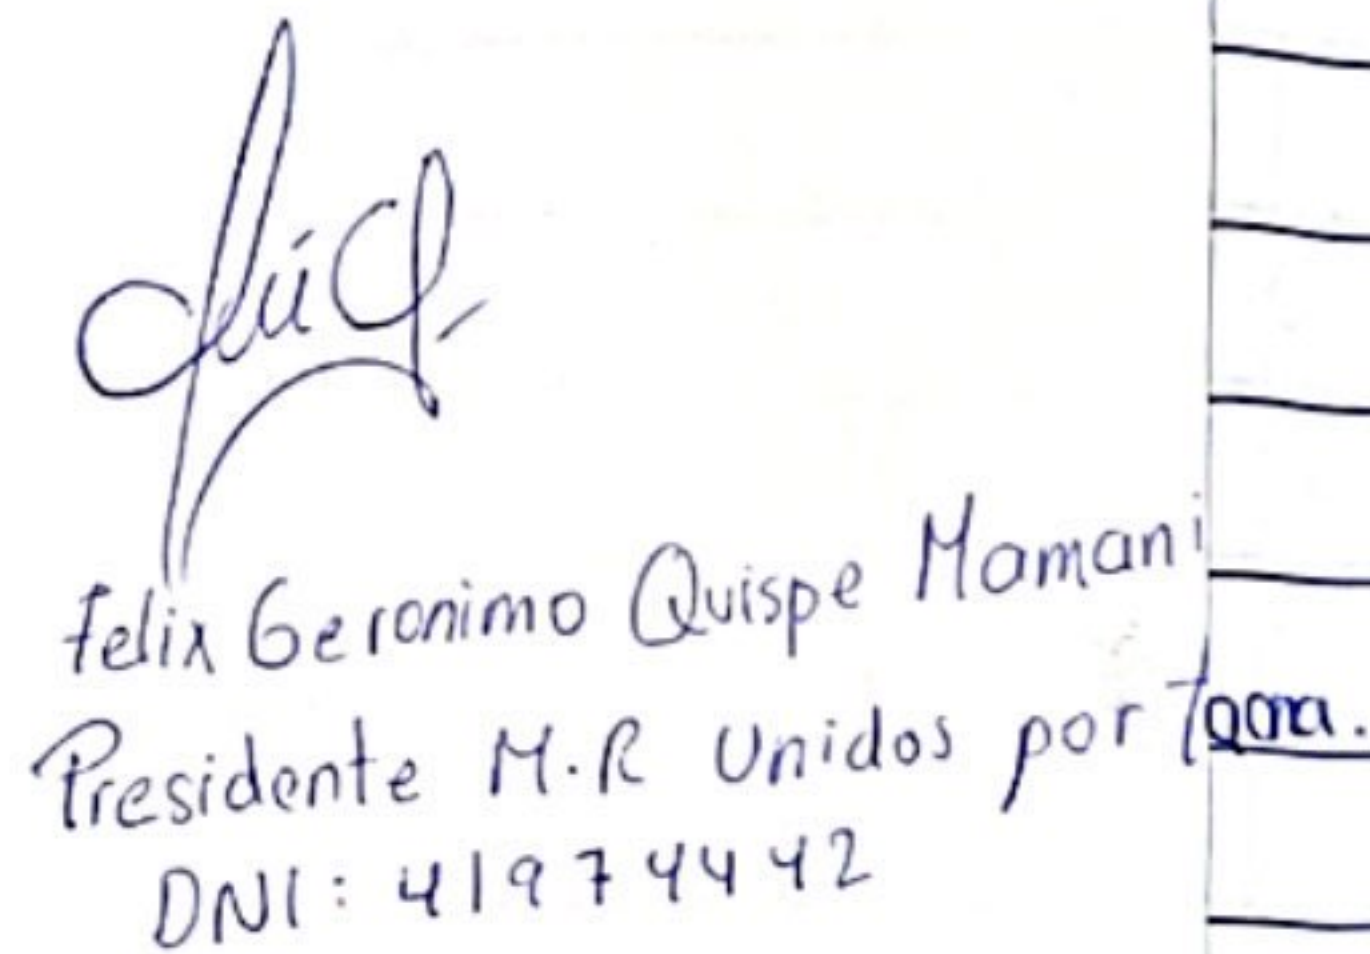 Felix Geronimo Quispe Mamani
Presidente M.R Unidos por Tacna.
DNI: 41974442